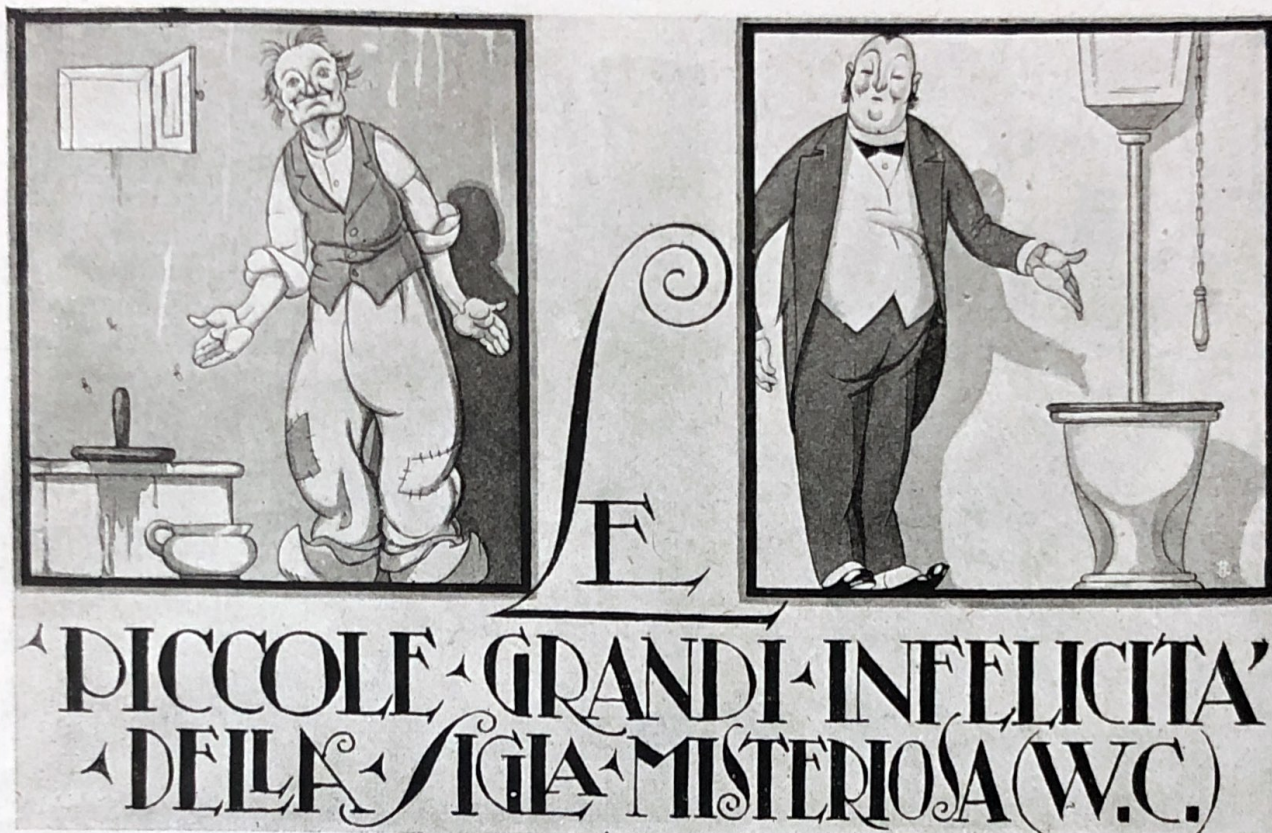 LE
PICCOLE · GRANDI · INFELICITA'
DELLA · SIGLA · MISTERIOSA (W.C.)